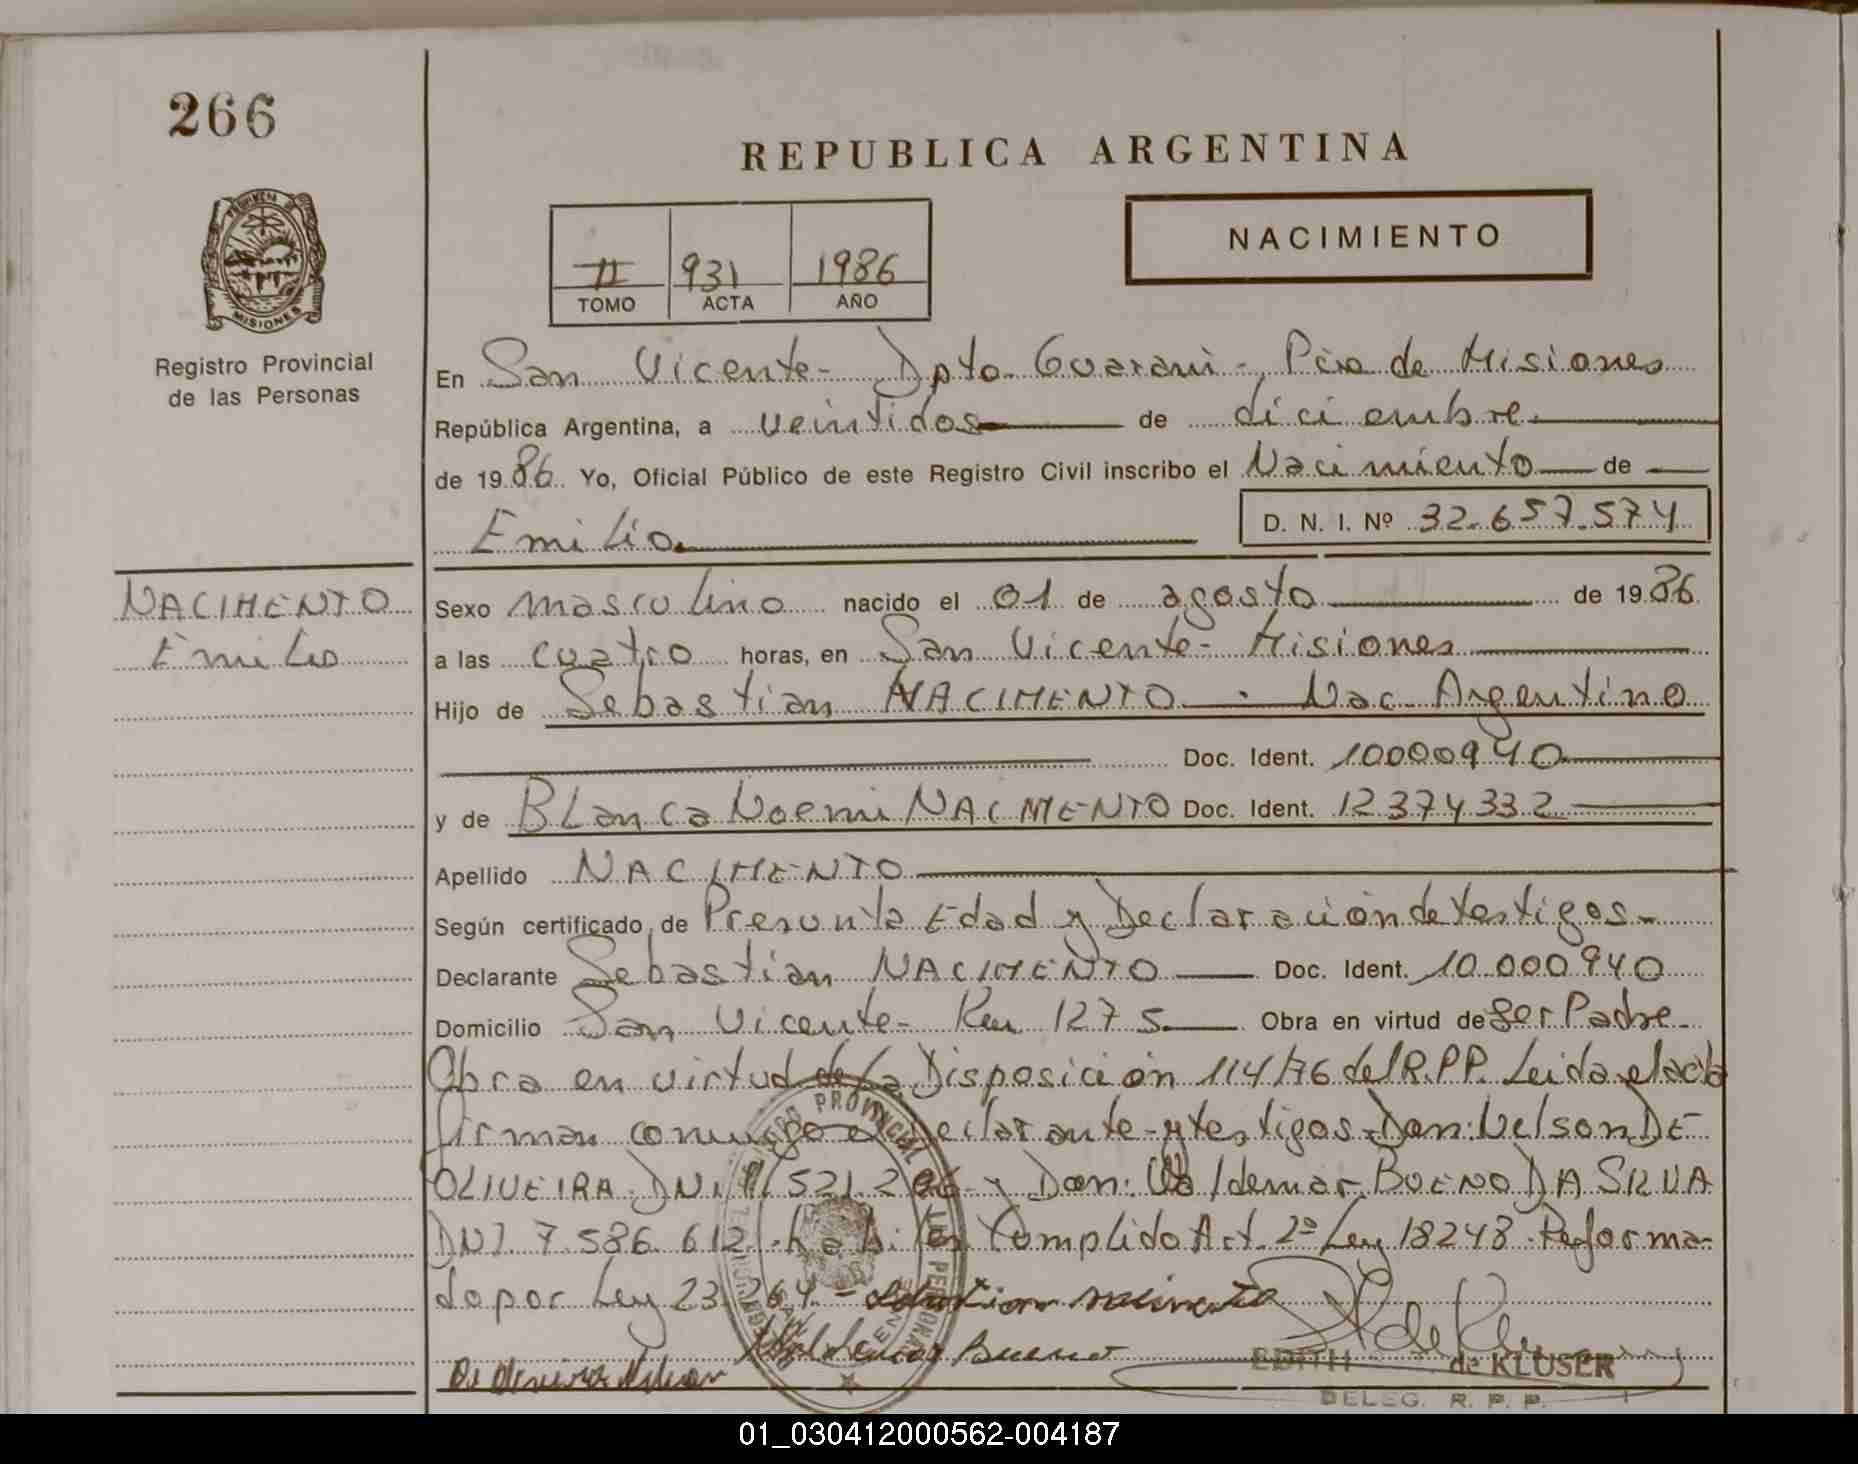 266
REPUBLICA ARGENTINA
NACIMIENTO
PROVINCIA DE
MISIONES
Registro Provincial
de las Personas
II 931 1986
TOMO ACTA AÑO
En San Vicente - Dpto Guarani - Pcia de Misiones
República Argentina, a veintidos de diciembre
de 1986 Yo, Oficial Público de este Registro Civil inscribo el Nacimiento de
Emilio D. N. I. Nº 32.657.574
NACIMENTO
Emilio
Sexo masculino nacido el 01 de agosto de 1986
a las cuatro horas, en San Vicente - Misiones
Hijo de Sebastian NACIMENTO - Nac. Argentino
Doc. Ident. 10000940
y de Blanca Noemi NACIMENTO Doc. Ident. 12374332
Apellido NACIMENTO
Según certificado de Presunta Edad y Declaración de testigos-
Declarante Sebastian NACIMENTO Doc. Ident. 10.000940
Domicilio San Vicente - Km 1275 Obra en virtud de Ser Padre-
Obra en virtud de la Disposición 114/76 del R.P.P. Leida el acta
firman conmigo el declarante y testigos Don: Nelson DE
OLIVEIRA DNI 521.206 y Don: Valdemar BUENO DA SILVA
DNI 7.586.612 habiles Complido Art. 2º Ley 18248 Reforma-
do por Ley 23.264 - Sebastian nacimento
Valdemar Bueno
De Oliveira Nelson
EDITH de KLUSER
DELEG. R. P. P.
01_030412000562-004187